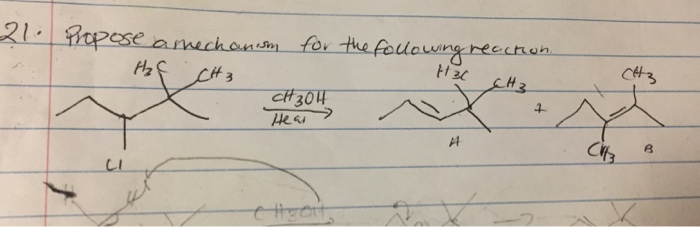 21. Propose a mechanism for the following reaction.
H3C CH3 CH3OH Heat H3C CH3 + CH3
Cl A CH3 B
CH3OH